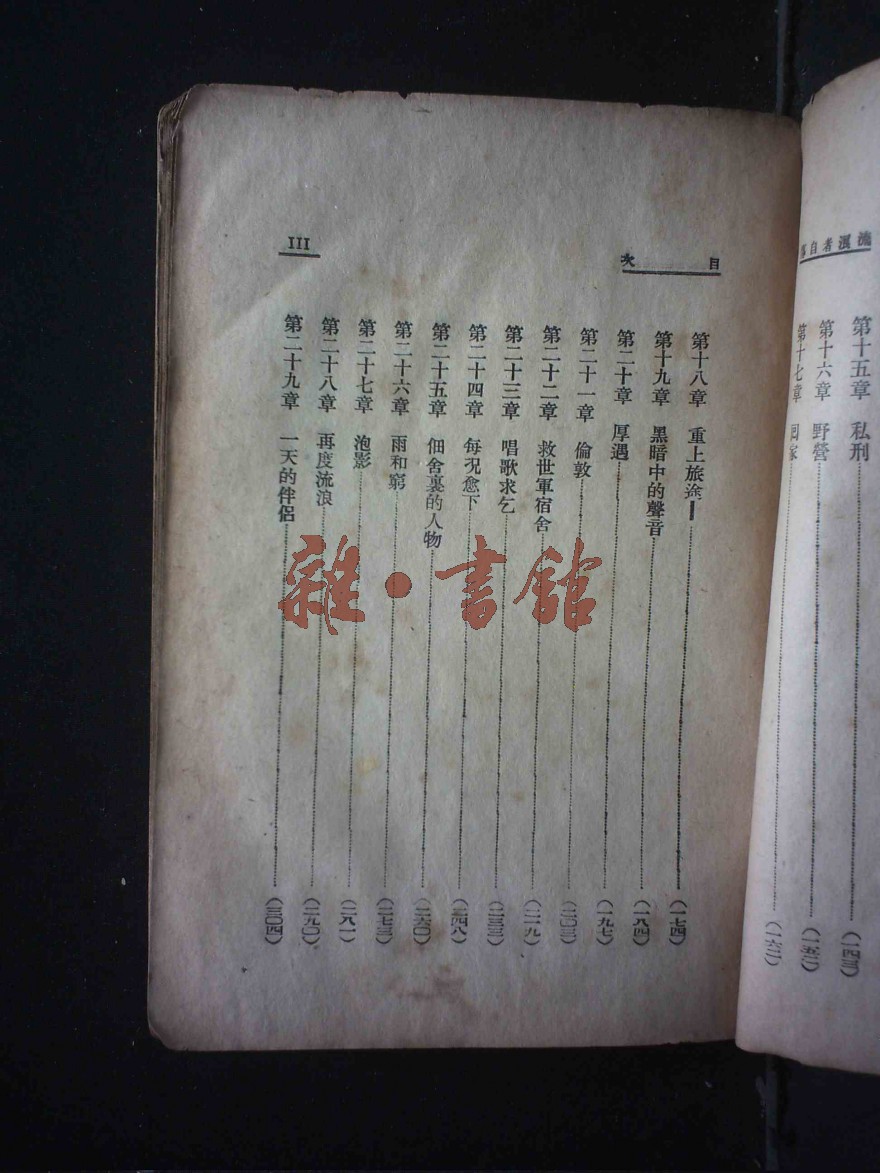 流浪者自
第十五章 私刑 (一四三)
第十六章 野營 (一五二)
第十七章 回家 (一六二)
目次
第十八章 重上旅途 (一七四)
第十九章 黑暗中的聲音 (一八四)
第二十章 厚遇 (一九七)
第二十一章 倫敦 (二〇三)
第二十二章 救世軍宿舍 (二一九)
第二十三章 唱歌求乞 (二三三)
第二十四章 每況愈下 (二四八)
第二十五章 佃舍裏的人物 (二六〇)
第二十六章 雨和窮 (二七三)
第二十七章 泡影 (二八一)
第二十八章 再度流浪 (二九〇)
第二十九章 一天的伴侶 (三〇四)
III
雜·書館